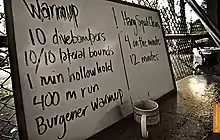 Warmup
10 divebombers
10/10 lateral bounds
1 min hollow hold
400 m run
Burgener Warmup
Hang Squat Clean
1 on the minute
12 minutes